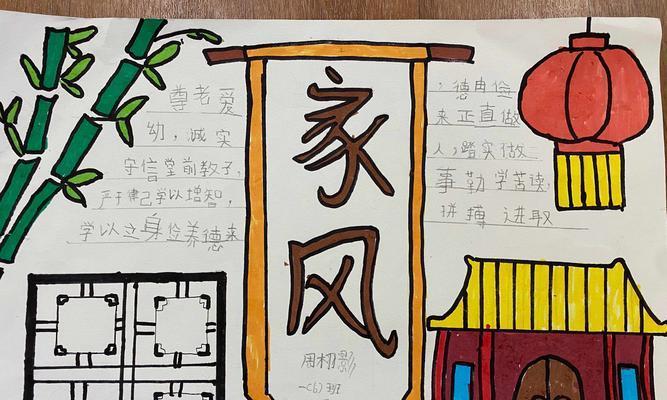 尊老爱
幼，诚实
守信堂前教子，
严于律己学以增智，
学以立身俭养德来
家风
周 影
一(6)班
，德由俭
来正直做
人，踏实做
事勤学苦读，
拼搏 进取